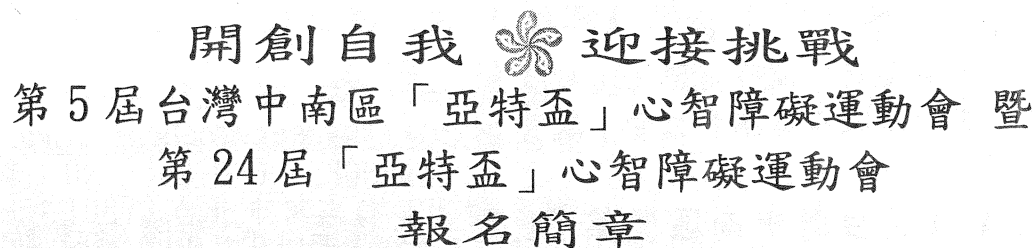 開創自我 迎接挑戰
第5屆台灣中南區「亞特盃」心智障礙運動會 暨
第24屆「亞特盃」心智障礙運動會
報名簡章